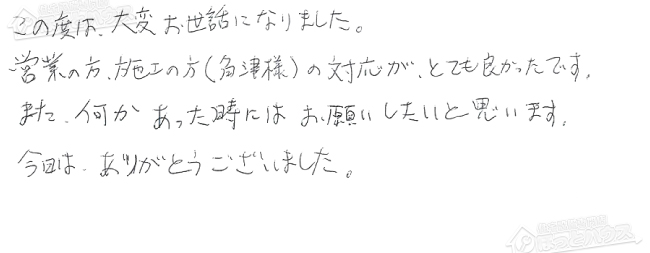 この度は、大変お世話になりました。
営業の方、施工の方(角津様)の対応が、とても良かったです。
また、何かあった時にはお願いしたいと思います。
今回は、ありがとうございました。